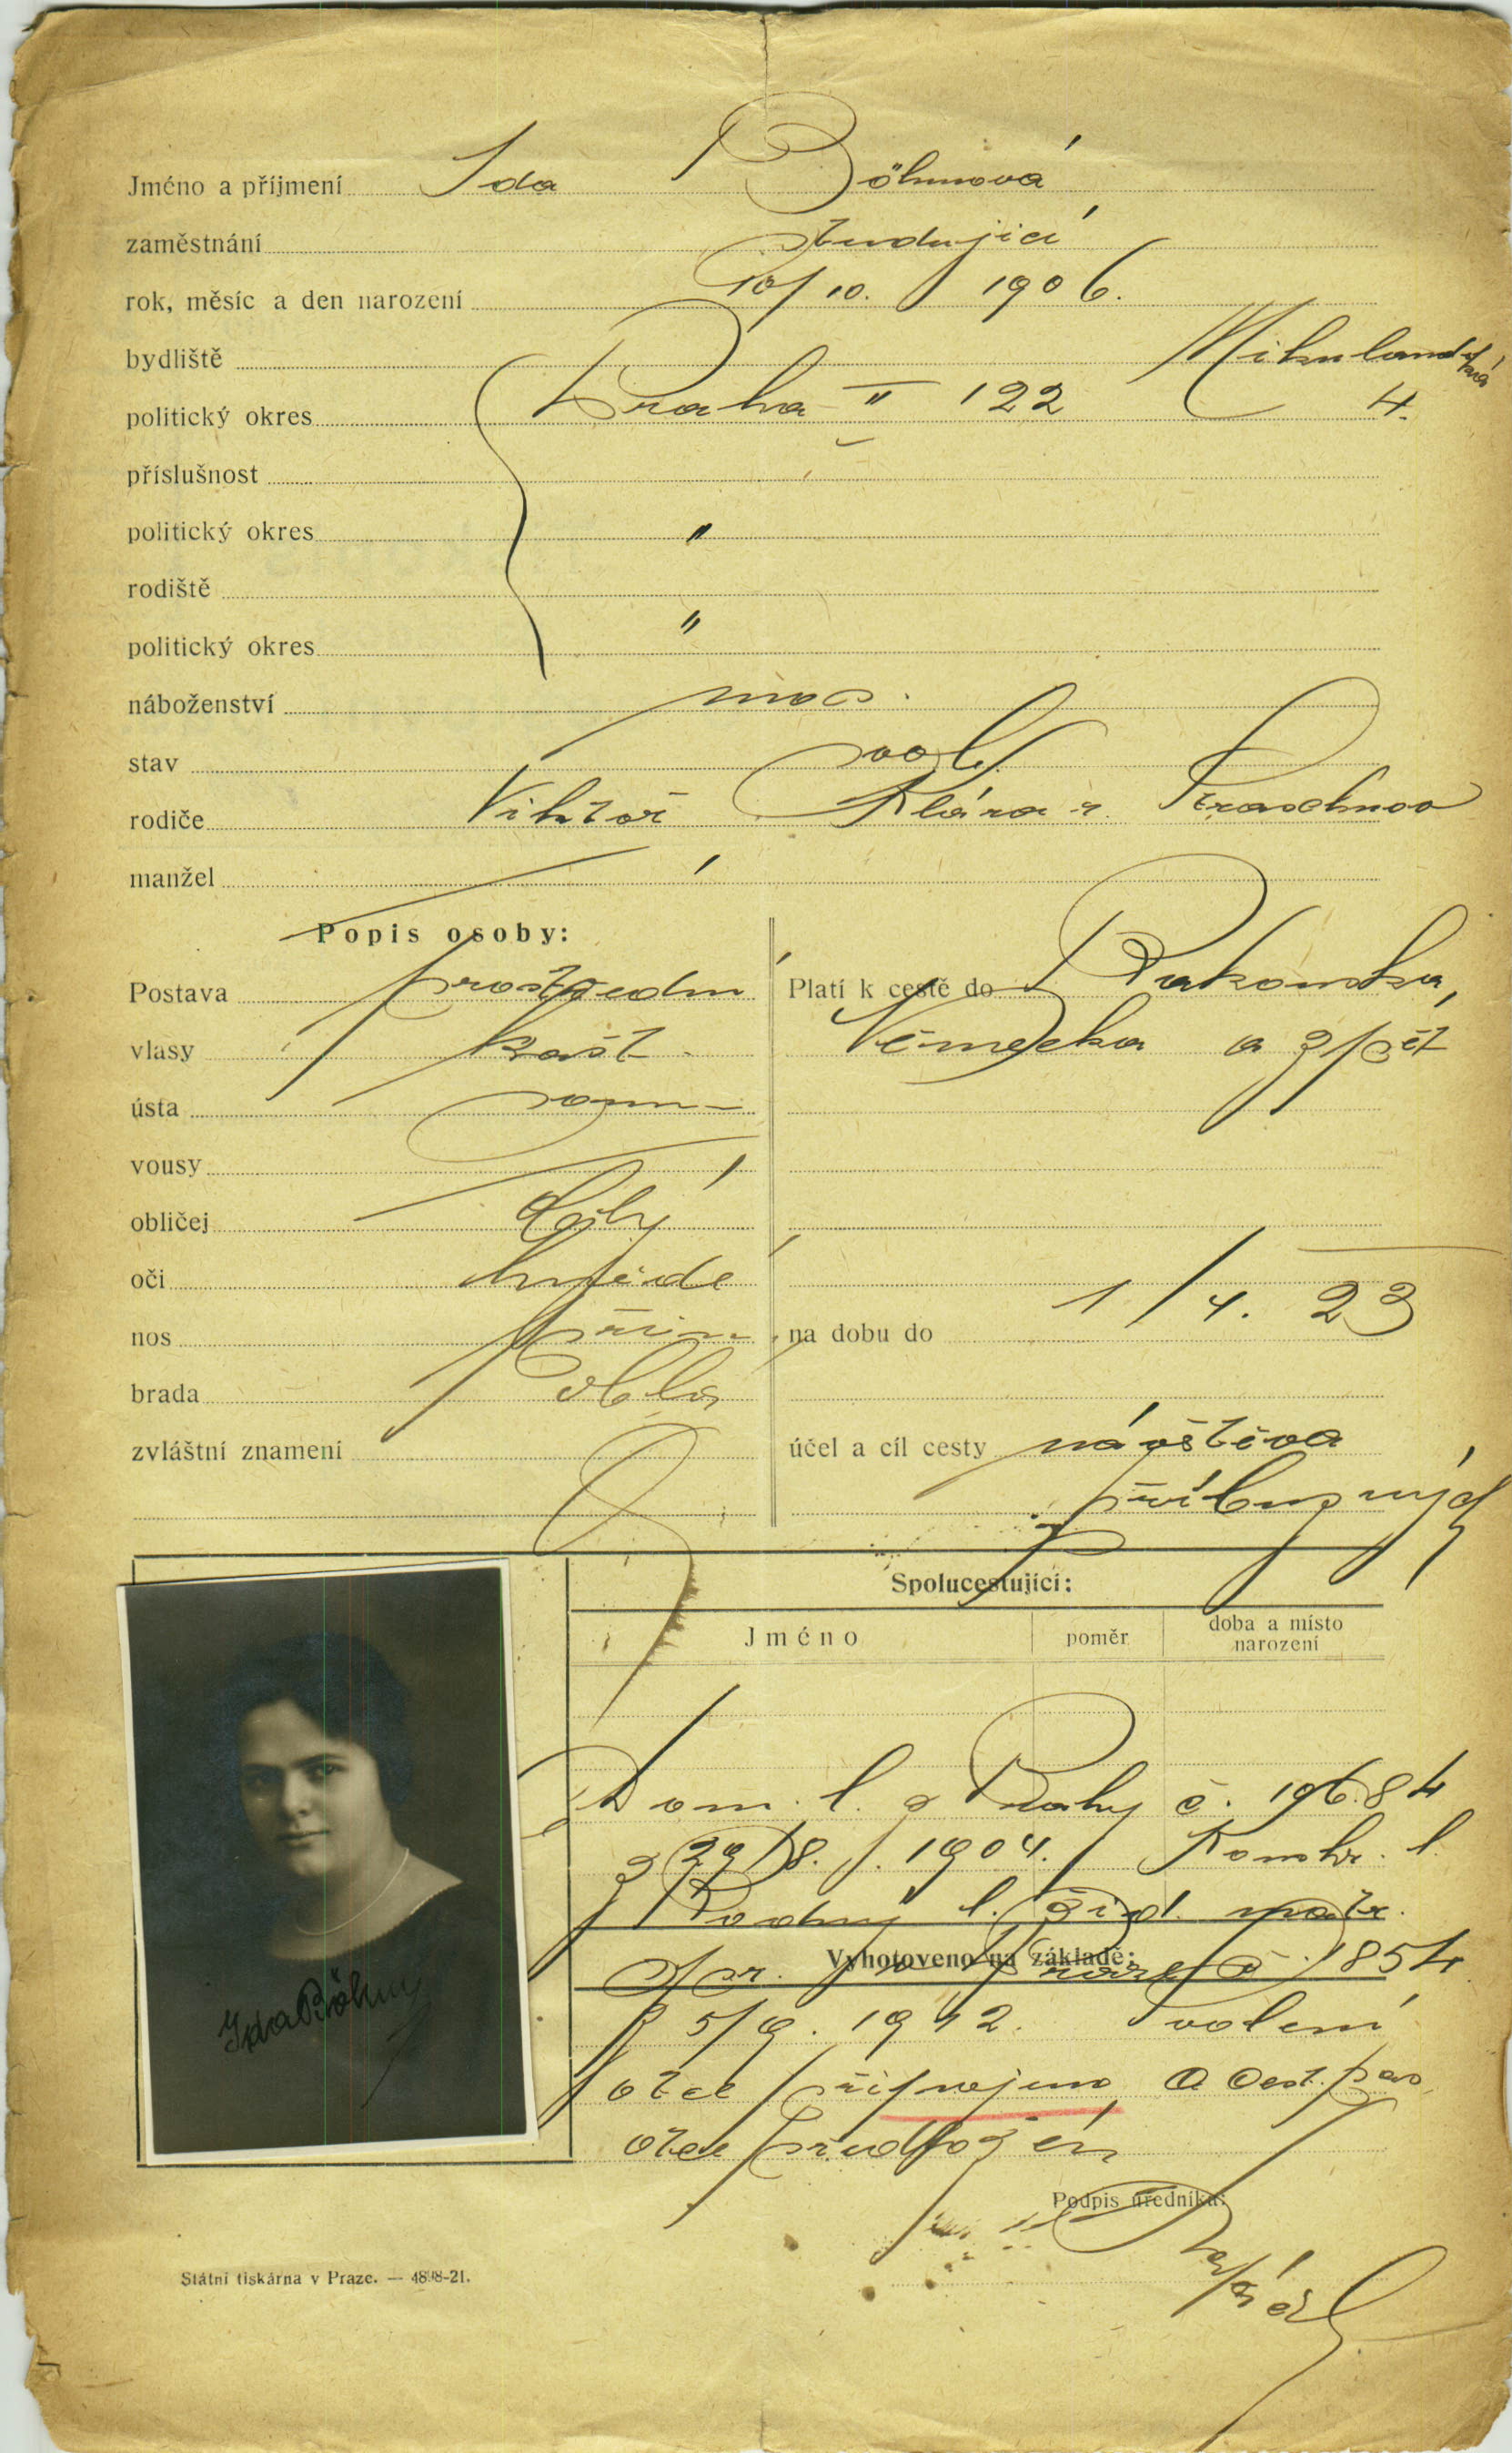 Jméno a příjmení Ida Böhmová
zaměstnání studující
rok, měsíc a den narození 10/10. 1906.
bydliště Mikulandská
politický okres Praha II 122 4.
příslušnost
politický okres "
rodiště
politický okres "
náboženství mos.
stav svob.
rodiče Viktor Klára r.
manžel
Popis osoby:
Postava prostřední
vlasy kašt.
ústa soum.
vousy
obličej bílý
oči hnědé
nos přím.
brada oblá
zvláštní znamení
Platí k cestě do Rakouska,
Německa a zpět
na dobu do 1/4. 23
účel a cíl cesty návštěva
příbuzných
Spolucestující:
Jméno poměr doba a místo narození
Dom. l. z Prahy č. 19684
z 29/8. 1904. Domkr. l.
Rodný l. žid. matr.
Vyhotoveno na základě:
v Praze č. 1854
z 5/9. 1912. Svolení
otce připojeno a cest. pas
otce předložen
Ida Böhm
Podpis úředníka:
Státní tiskárna v Praze. — 4898-21.